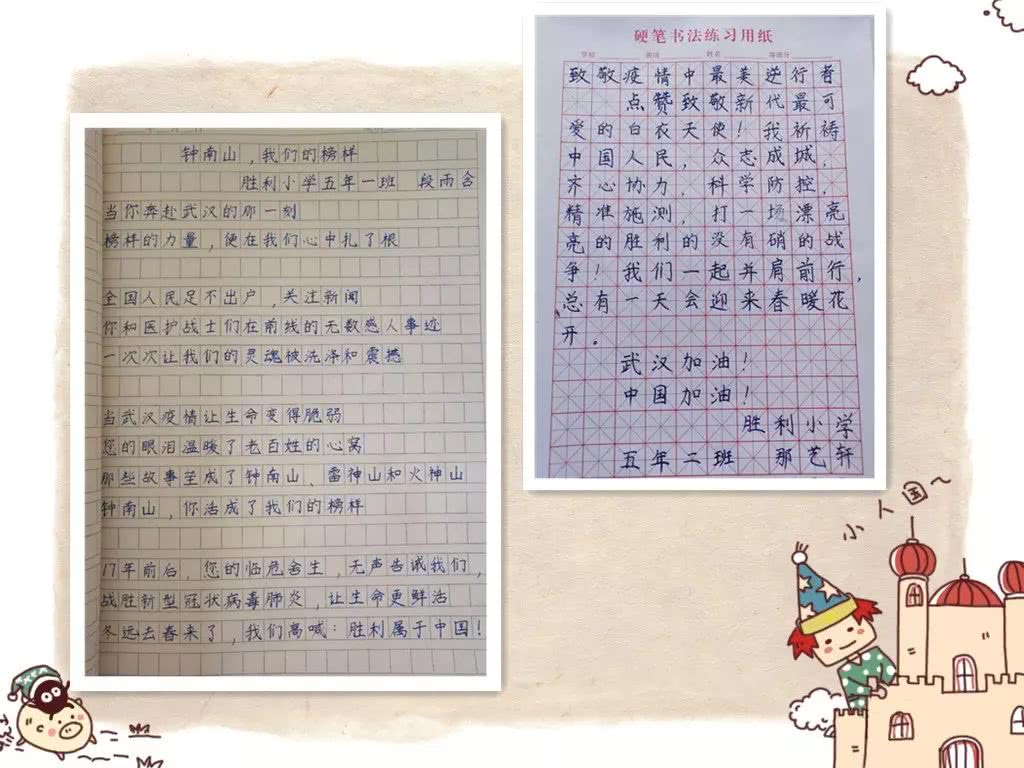 钟南山，我们的榜样
胜利小学五年一班 段雨含
当你奔赴武汉的那一刻
榜样的力量，便在我们心中扎了根
全国人民足不出户，关注新闻
你和医护战士们在前线的无数感人事迹
一次次让我们的灵魂被洗净和震撼
当武汉疫情让生命变得脆弱
您的眼泪温暖了老百姓的心窝
那些故事至成了钟南山、雷神山和火神山
钟南山，你活成了我们的榜样
17年前后，您的临危舍生，无声告诫我们，
战胜新型冠状病毒肺炎，让生命更鲜活
冬远去春来了，我们高喊：胜利属于中国！
硬笔书法练习用纸
学校 班级 姓名 等级分
致敬疫情中最美逆行者
点赞致敬新代最可
爱的白衣天使！我祈祷
中国人民，众志成城，
齐心协力，科学防控，
精准施测，打一场漂亮
亮的胜利的没有硝的战
争！我们一起并肩前行，
总有一天会迎来春暖花
开。
武汉加油！
中国加油！
胜利小学
五年二班 那艺轩
小人国~